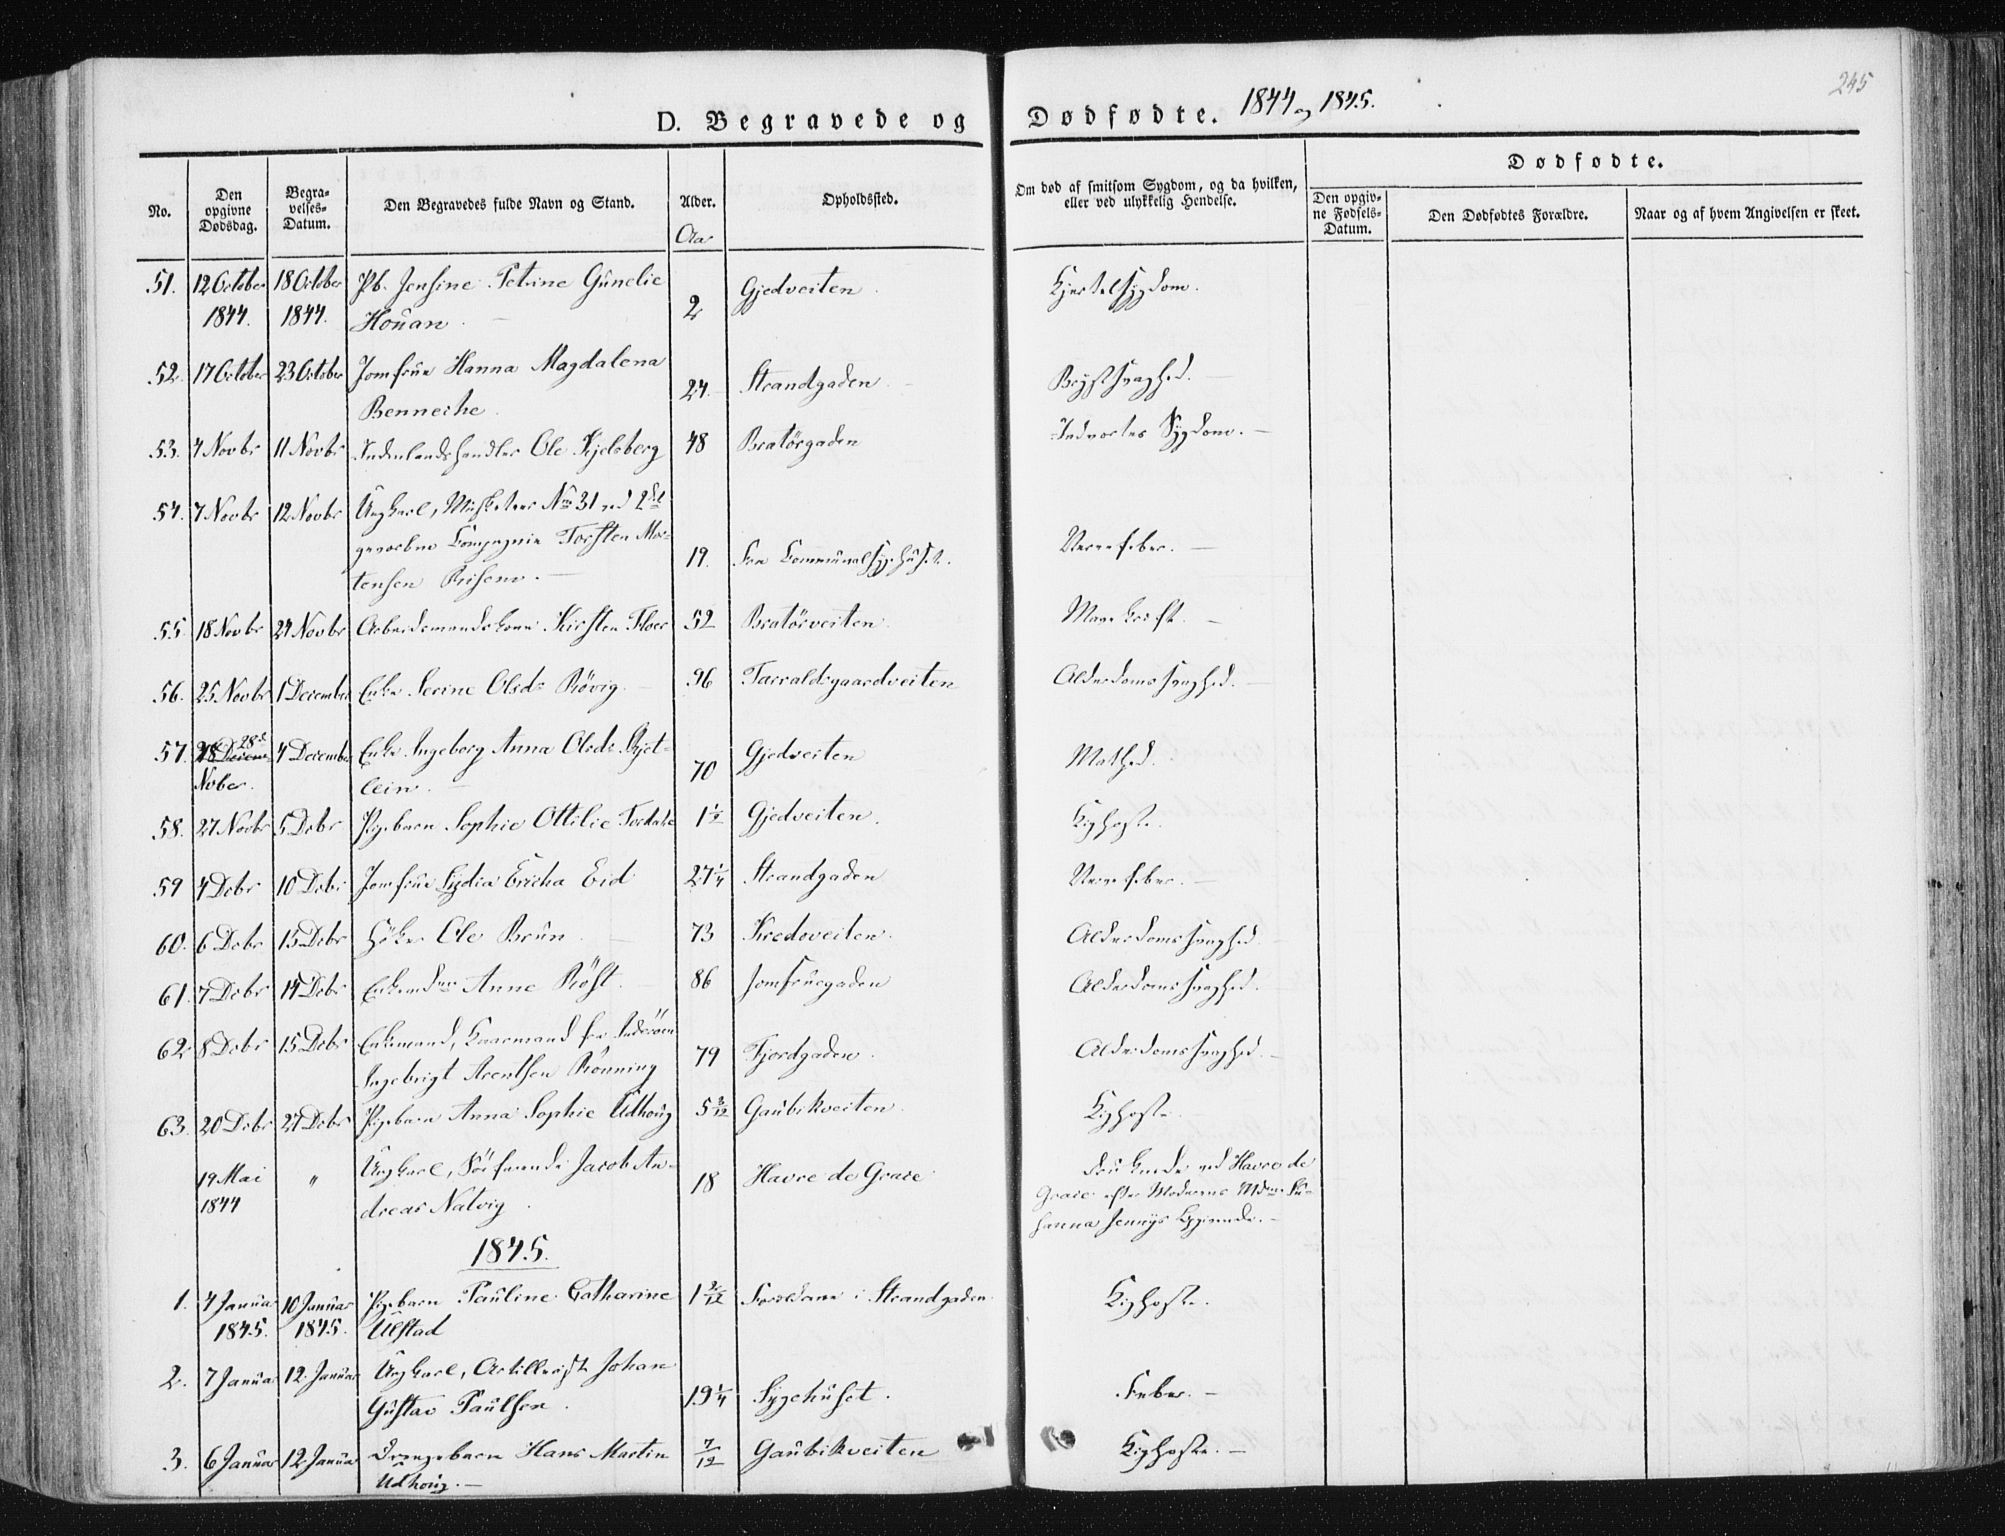 245
D. Begravede og Dødfødte. 1844 og 1845.
No.
Den opgivne Dødsdag.
Begravelses-Datum.
Den Begravedes fulde Navn og Stand.
Alder.
Aar
Opholdssted.
Om død af smitsom Sygdom, og da hvilken, eller ved ulykkelig Hendelse.
Dødfødte.
Den opgivne Fødsels-Datum.
Den Dødfødtes Forældre.
Naar og af hvem Angivelsen er skeet.
51. 12 October 18 October Pb. Jensine Petrine Gunelie 2 Gjedveiten. Kjertelsygdom.
1844. 1844. Houan.
52. 17 October 23 October Jomfrue Hanna Magdalena 24. Strandgaden. Brystsvaghed.
Benneche.
53. 4 Novbr 11 Novbr Indenlandshandler Ole Kjelsberg 48 Bratörgaden Indvortes Sygdom.
54. 7 Novbr 12 Novbr Ungkarl, Musketeer No 31 ved 2det
gevorbne Compagnie Torsten Mor- 19. Fra Communalsygehuset. Nervefeber.
tensen Risenv.
55 18 Novbr 24 Novbr Arbeidsmandskone Kirsten Floer 52 Bratörveiten.
56. 25 Novbr 1 December Enke Serine Olsdr Rövig. 96 Tarraldsgaardveiten Alderdomssvaghed.
57. 28de 4 December Enke Ingeborg Anna Olsdr Kjet- 70 Gjedveiten Mathed.
Nvber. lein.
58. 27 Novbr 5 Debr Pigebarn Sophie Ottilie 1½ Gjedveiten. Kighoste.
59 4 Debr 10 Debr Jomfrue Lydia Ericha Eid 27¼ Strandgaden Nervefeber.
60. 6 Debr 15 Debr Höker Ole Brun 73 Kredoveiten. Alderdomssvaghed.
61. 7 Debr 14 Debr Anne Röst. 86 Jomfruegaden Alderdomssvaghed.
62 8 Debr 15 Debr Enkemand, Kaarmand fra Inderöen
Ingebrigt Arentsen Rönning 79 Fjordgaden. Alderdomssvaghed.
63. 20 Debr 27 Debr Pigebarn Anna Sophie Udhoug 5 3/12 Gaubikveiten. Kighoste.
19 Mai " Ungkarl, Söefarende Jacob An- 18 Havre de Grace Druknede ved Havre de
1844 dreas Natvig. Grace efter Moderens Md. Su-
sanna Jennys Opgivende.
1845.
1. 4 Januar 10 Januar Pigebarn Pauline Catharine 1 2/12 Forældrene i Strandgaden. Kighoste.
1845. 1845. Ulstad
2. 7 Januar 12. Januar Ungkarl, Artillerist Johan
Gustav Paulsen. 19¼ Sygehuset. Feber.
3. 6 Januar 12 Januar Drengebarn Hans Martin 7/12 Gaubikveiten Kighoste.
Udhoug.